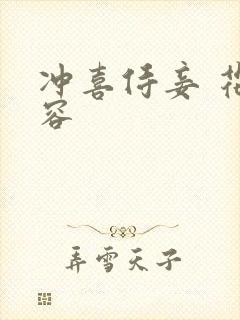 冲喜侍妾 花
容
弄雪天子